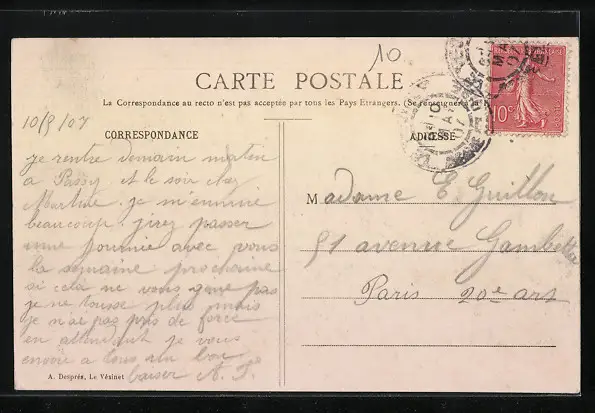 10
CARTE POSTALE
La Correspondance au recto n'est pas acceptée par tous les Pays Etrangers. (Se renseigner à la
10/5/07
CORRESPONDANCE
ADRESSE
10c
je rentre demain matin
à Passy et le soir chez
je m'ennuie
beaucoup. j'irez passer
une journée avec vous
la semaine prochaine
si cela ne vous gene pas
je ne tousse plus mais
je n'ai pas pris de force
en attendant je vous
envoie a tous un bon
baiser A. F.
Madame E. Guillon
51 avenue Gambetta
Paris 20e art
A. Desprès, Le Vésinet